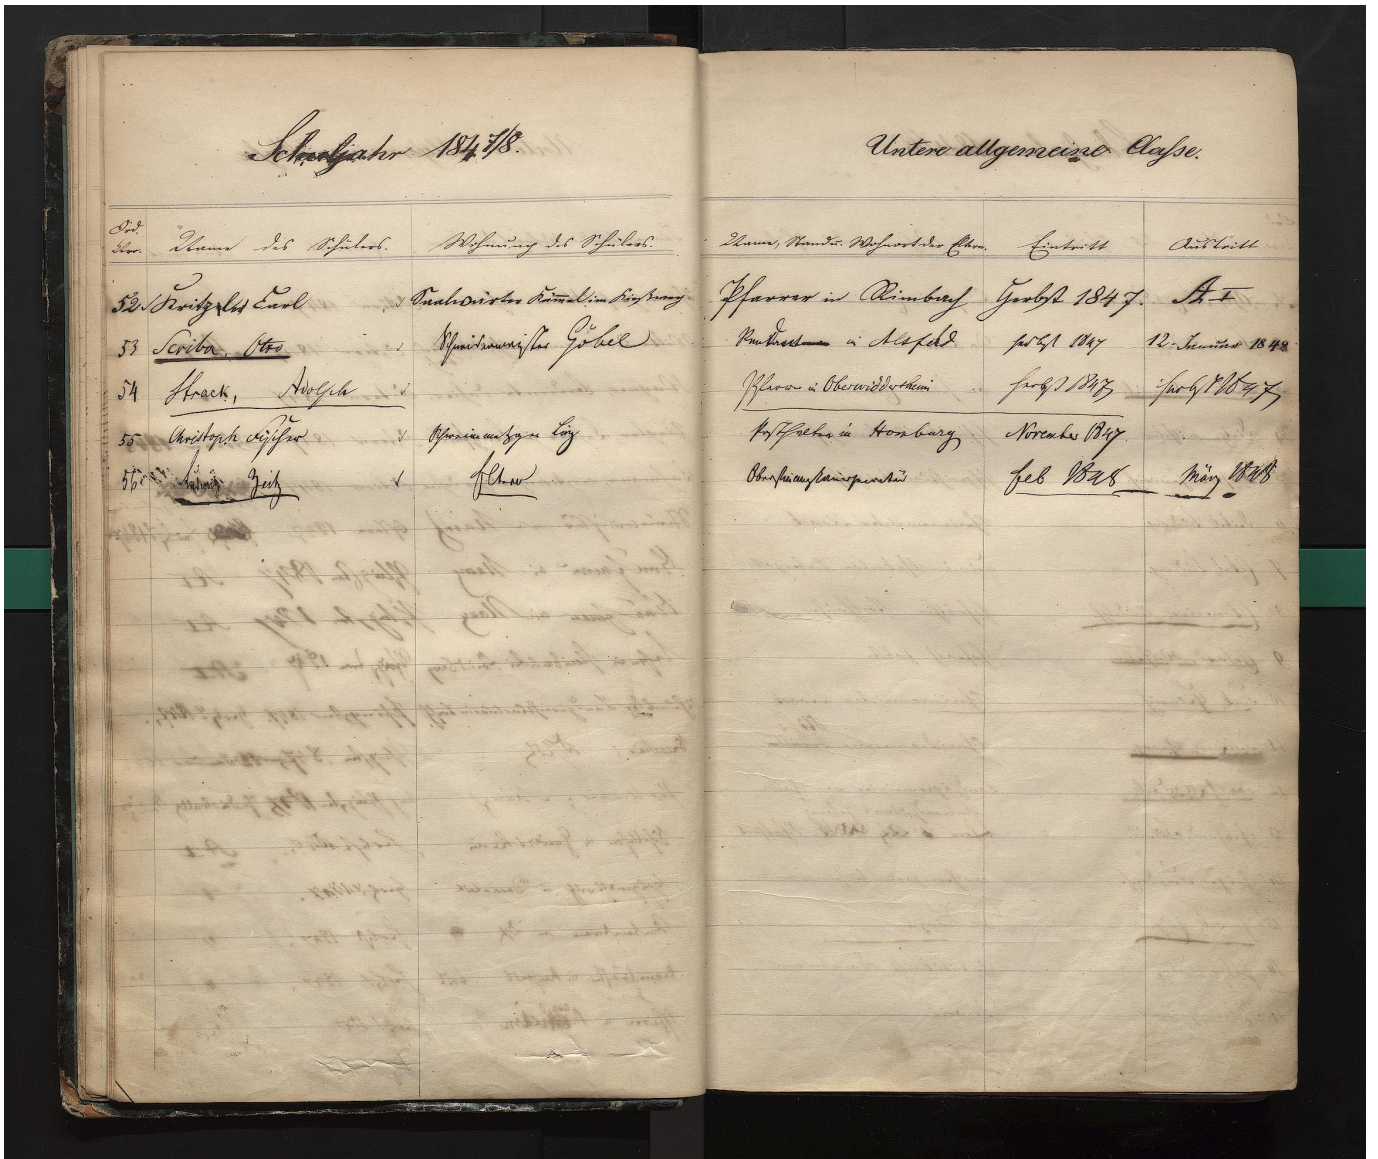 Schuljahr 1847/8.
Untere allgemeine Classe.
Ord. Nro. Name des Schülers. Wohnung des Schülers. Name, Stand u. Wohnort der Eltern. Eintritt Austritt
52. Kritzler Carl im Pfarrer in Rimbach Herbst 1847. A I
53 Scriba, Otto Schneidermeister Göbel in Alsfeld Herbst 1847 12. Januar 1848
54 Strack, Adolph Pfarrer in Oberwiddersheim Herbst 1847 Herbst 1847
55 Christoph Fischer Posthalter in Homburg November 1847.
56 Ludwig Zeitz Eltern feb 1848 März 1848